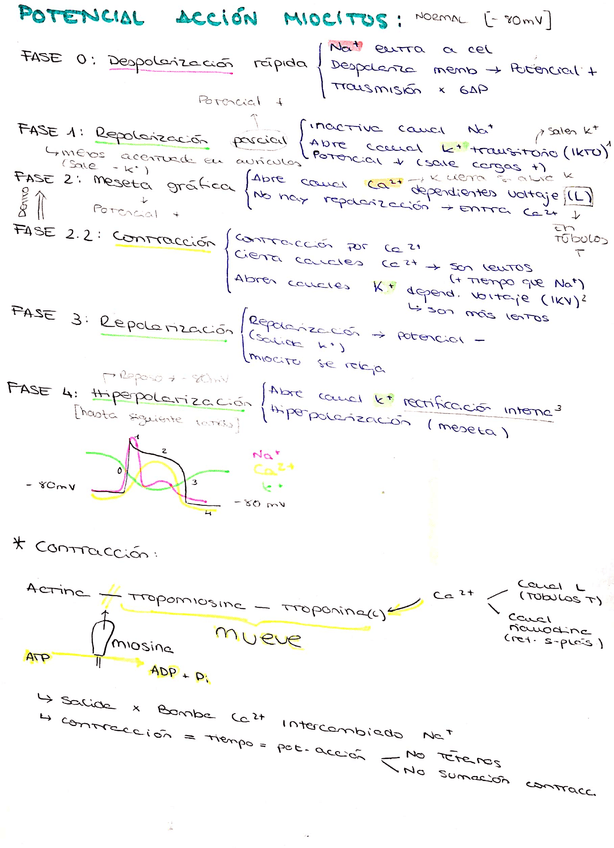 POTENCIAL ACCIÓN MIOCITOS: NORMAL [-80mV]
FASE 0: Despolarización rápida
Na+ entra a cel
Despolariza memb → Potencial +
Transmisión x GAP
Potencial +
FASE 1: Repolarización parcial
↳ menos acentuada en aurículas
(sale K+)
Inactiva canal Na+
Abre canal K+ transitorio (IKTO)1
salen K+
Potencial + (sale cargas +)
FASE 2: meseta gráfica
Potencial +
Abre canal Ca2+ dependientes voltaje (L)
No hay repolarización → entra Ca2+
En TÚBULOS T
FASE 2.2: Contracción
Contracción por Ca2+
Cierra canales Ca2+ → son lentos
(+ tiempo que Na+)
Abren canales K+ depend. voltaje (IKV)2
↳ son más lentos
FASE 3: Repolarización
Repolarización → potencial -
(salida K+)
miocito se relaja
Reposo -80mV
FASE 4: Hiperpolarización
Abre canal K+ rectificación interna3
Hiperpolarización (meseta)
1
2
0
3
4
Na+
Ca2+
K+
-80mV
-80 mV
* Contracción:
Actina — Tropomiosina — Troponina(c)
Ca2+
Canal L
(TÚBULOS T)
Canal
Rianodina
(ret. s-plás)
mueve
miosina
ATP
ADP + Pi
↳ Salida x Bomba Ca2+ intercambiado Na+
↳ contracción = tiempo = pot. acción
No Tétanos
No sumación contracc.